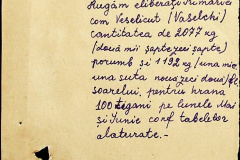 Rugăm eliberați Primăriei
com Veselicut (Vaselchi)
cantitatea de 2077 kg
/două mii șaptezeci șapte/
porumb și 1192 kg /una mie
una suta nouăzeci două/ fl.
soarelui, pentru hrana
100 țigani pe lunele Mai
și Iunie conf. tabelelor
alaturate.-